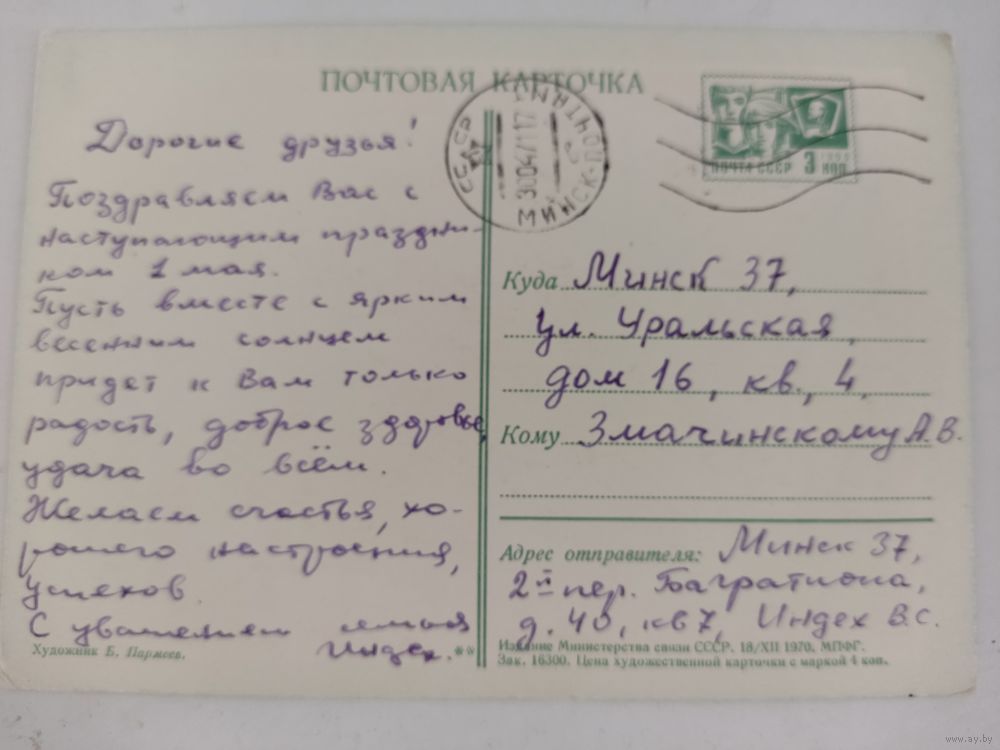 ПОЧТОВАЯ КАРТОЧКА
Дорогие друзья!
Поздравляем Вас с
наступающим праздни-
ком 1 мая.
Пусть вместе с ярким
весенним солнцем
придет к Вам только
радость, доброе здоровье,
удача во всём.
Желаем счастья, хо-
рошего настроения,
успехов.
С уважением семья
Индех.
Художник Б. Пармеев.
**
СССР
МИНСК-ПОЧТАМТ
300471 17
ПОЧТА СССР 3 КОП
Куда Минск 37,
ул. Уральская,
дом 16, кв. 4,
Кому Змачинскому А.В.
Адрес отправителя: Минск 37,
2й пер. Багратиона,
д. 40, кв 7, Индех В.С.
Издание Министерства связи СССР. 18/XII 1970. МПФГ.
Зак. 16300. Цена художественной карточки с маркой 4 коп.
www.ay.by